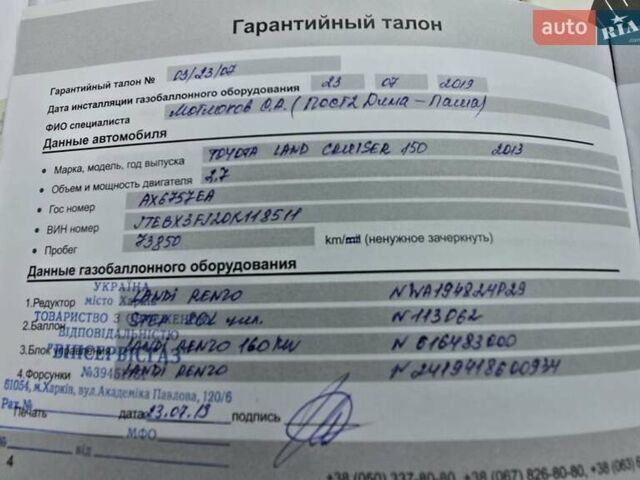 auto RIA .com
Гарантийный талон
Гарантийный талон № 03/23/07
Дата инсталляции газобаллонного оборудования 23 07 2019
ФИО специалиста О.А. (Пост 2 Дима - Паша)
Данные автомобиля
• Марка, модель, год выпуска TOYOTA LAND CRUISER 150 2013
• Объем и мощность двигателя 2,7
• Гос номер AX6757EA
• ВИН номер
• Пробег 73850 km/mil (ненужное зачеркнуть)
Данные газобаллонного оборудования
УКРАЇНА
1.Редуктор LANDI RENZO
місто Харків
ТОВАРИСТВО З ОБМЕЖЕНОЮ
2.Баллон N 113062
ВІДПОВІДАЛЬНІСТЮ
3.Блок управления LANDI RENZO N 616483000
"ВІПСЕРВІСГАЗ"
4.Форсунки LANDI RENZO
61054, м.Харків, вул.Академіка Павлова, 120/6
Печать дата 23.07.19 подпись
МФО
№ від
4 +38 (050) 337-80-80, +38 (067) 826-80-80, +38 (063)